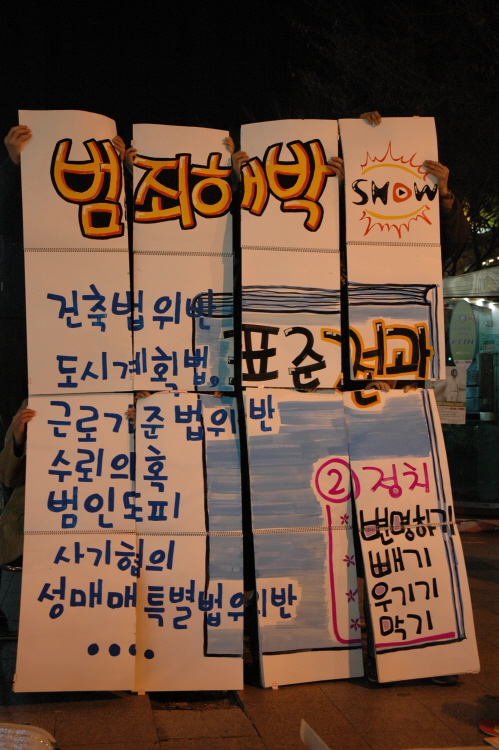 범죄해박 SHOW
건축법위반
도시계획법,
표준전과
근로기준법위반
수뢰의혹
범인도피
사기혐의
성매매특별법위반
....
② 정치
* 변명하기
* 빼기
* 우기기
* 막기